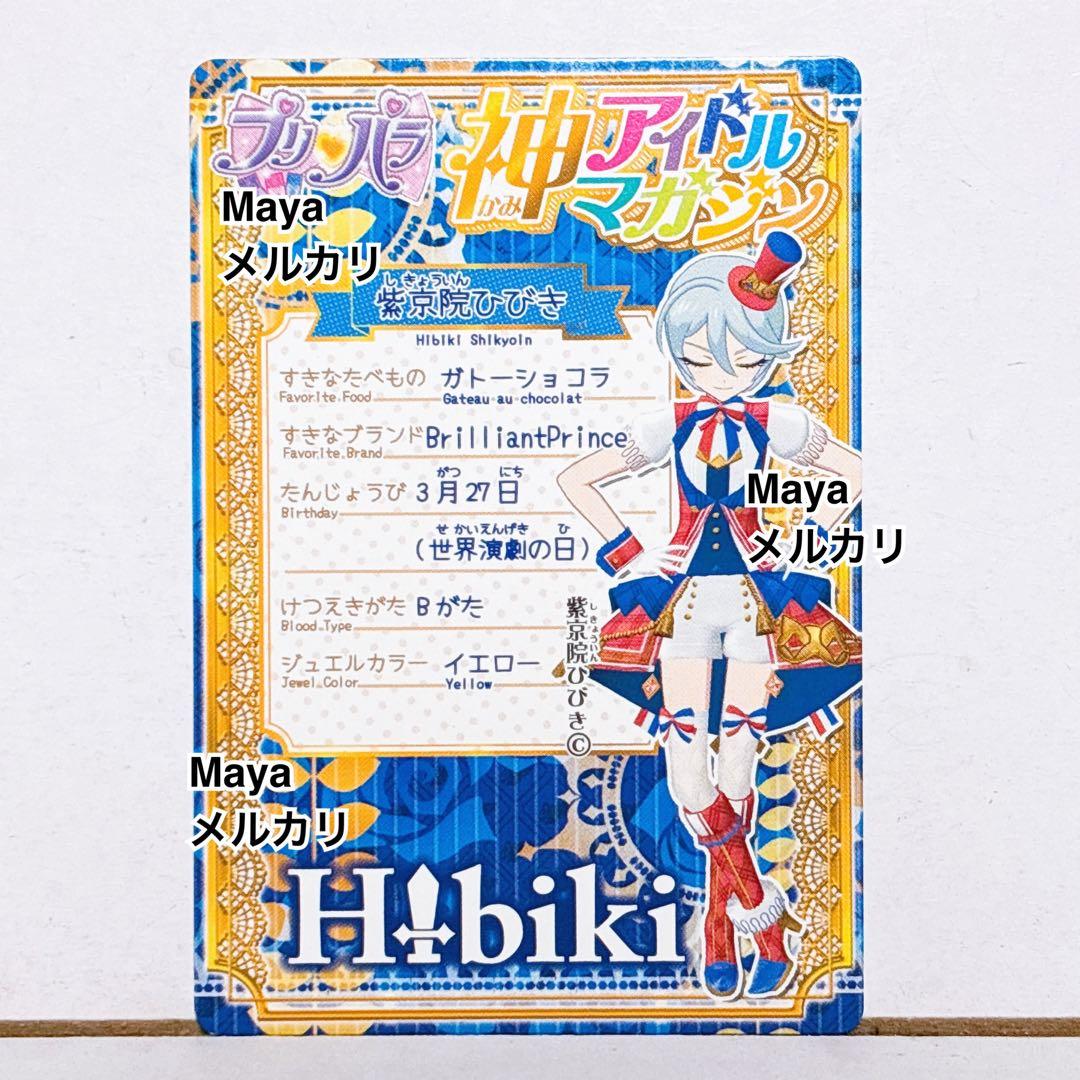 プリパラ
神アイドル
かみ
マガジン
Maya
メルカリ
しきょういん
紫京院ひびき
Hibiki Shikyoin
すきなたべもの ガトーショコラ
Favorite Food Gateau au chocolat
すきなブランド BrilliantPrince
Favorite Brand
がつ にち
たんじょうび 3月27日
Birthday
せかいえんげき ひ
(世界演劇の日)
Maya
メルカリ
けつえきがた Bがた
Blood Type
ジュエルカラー イエロー
Jewel Color Yellow
しきょういん
紫京院ひびき©
Maya
メルカリ
Hibiki